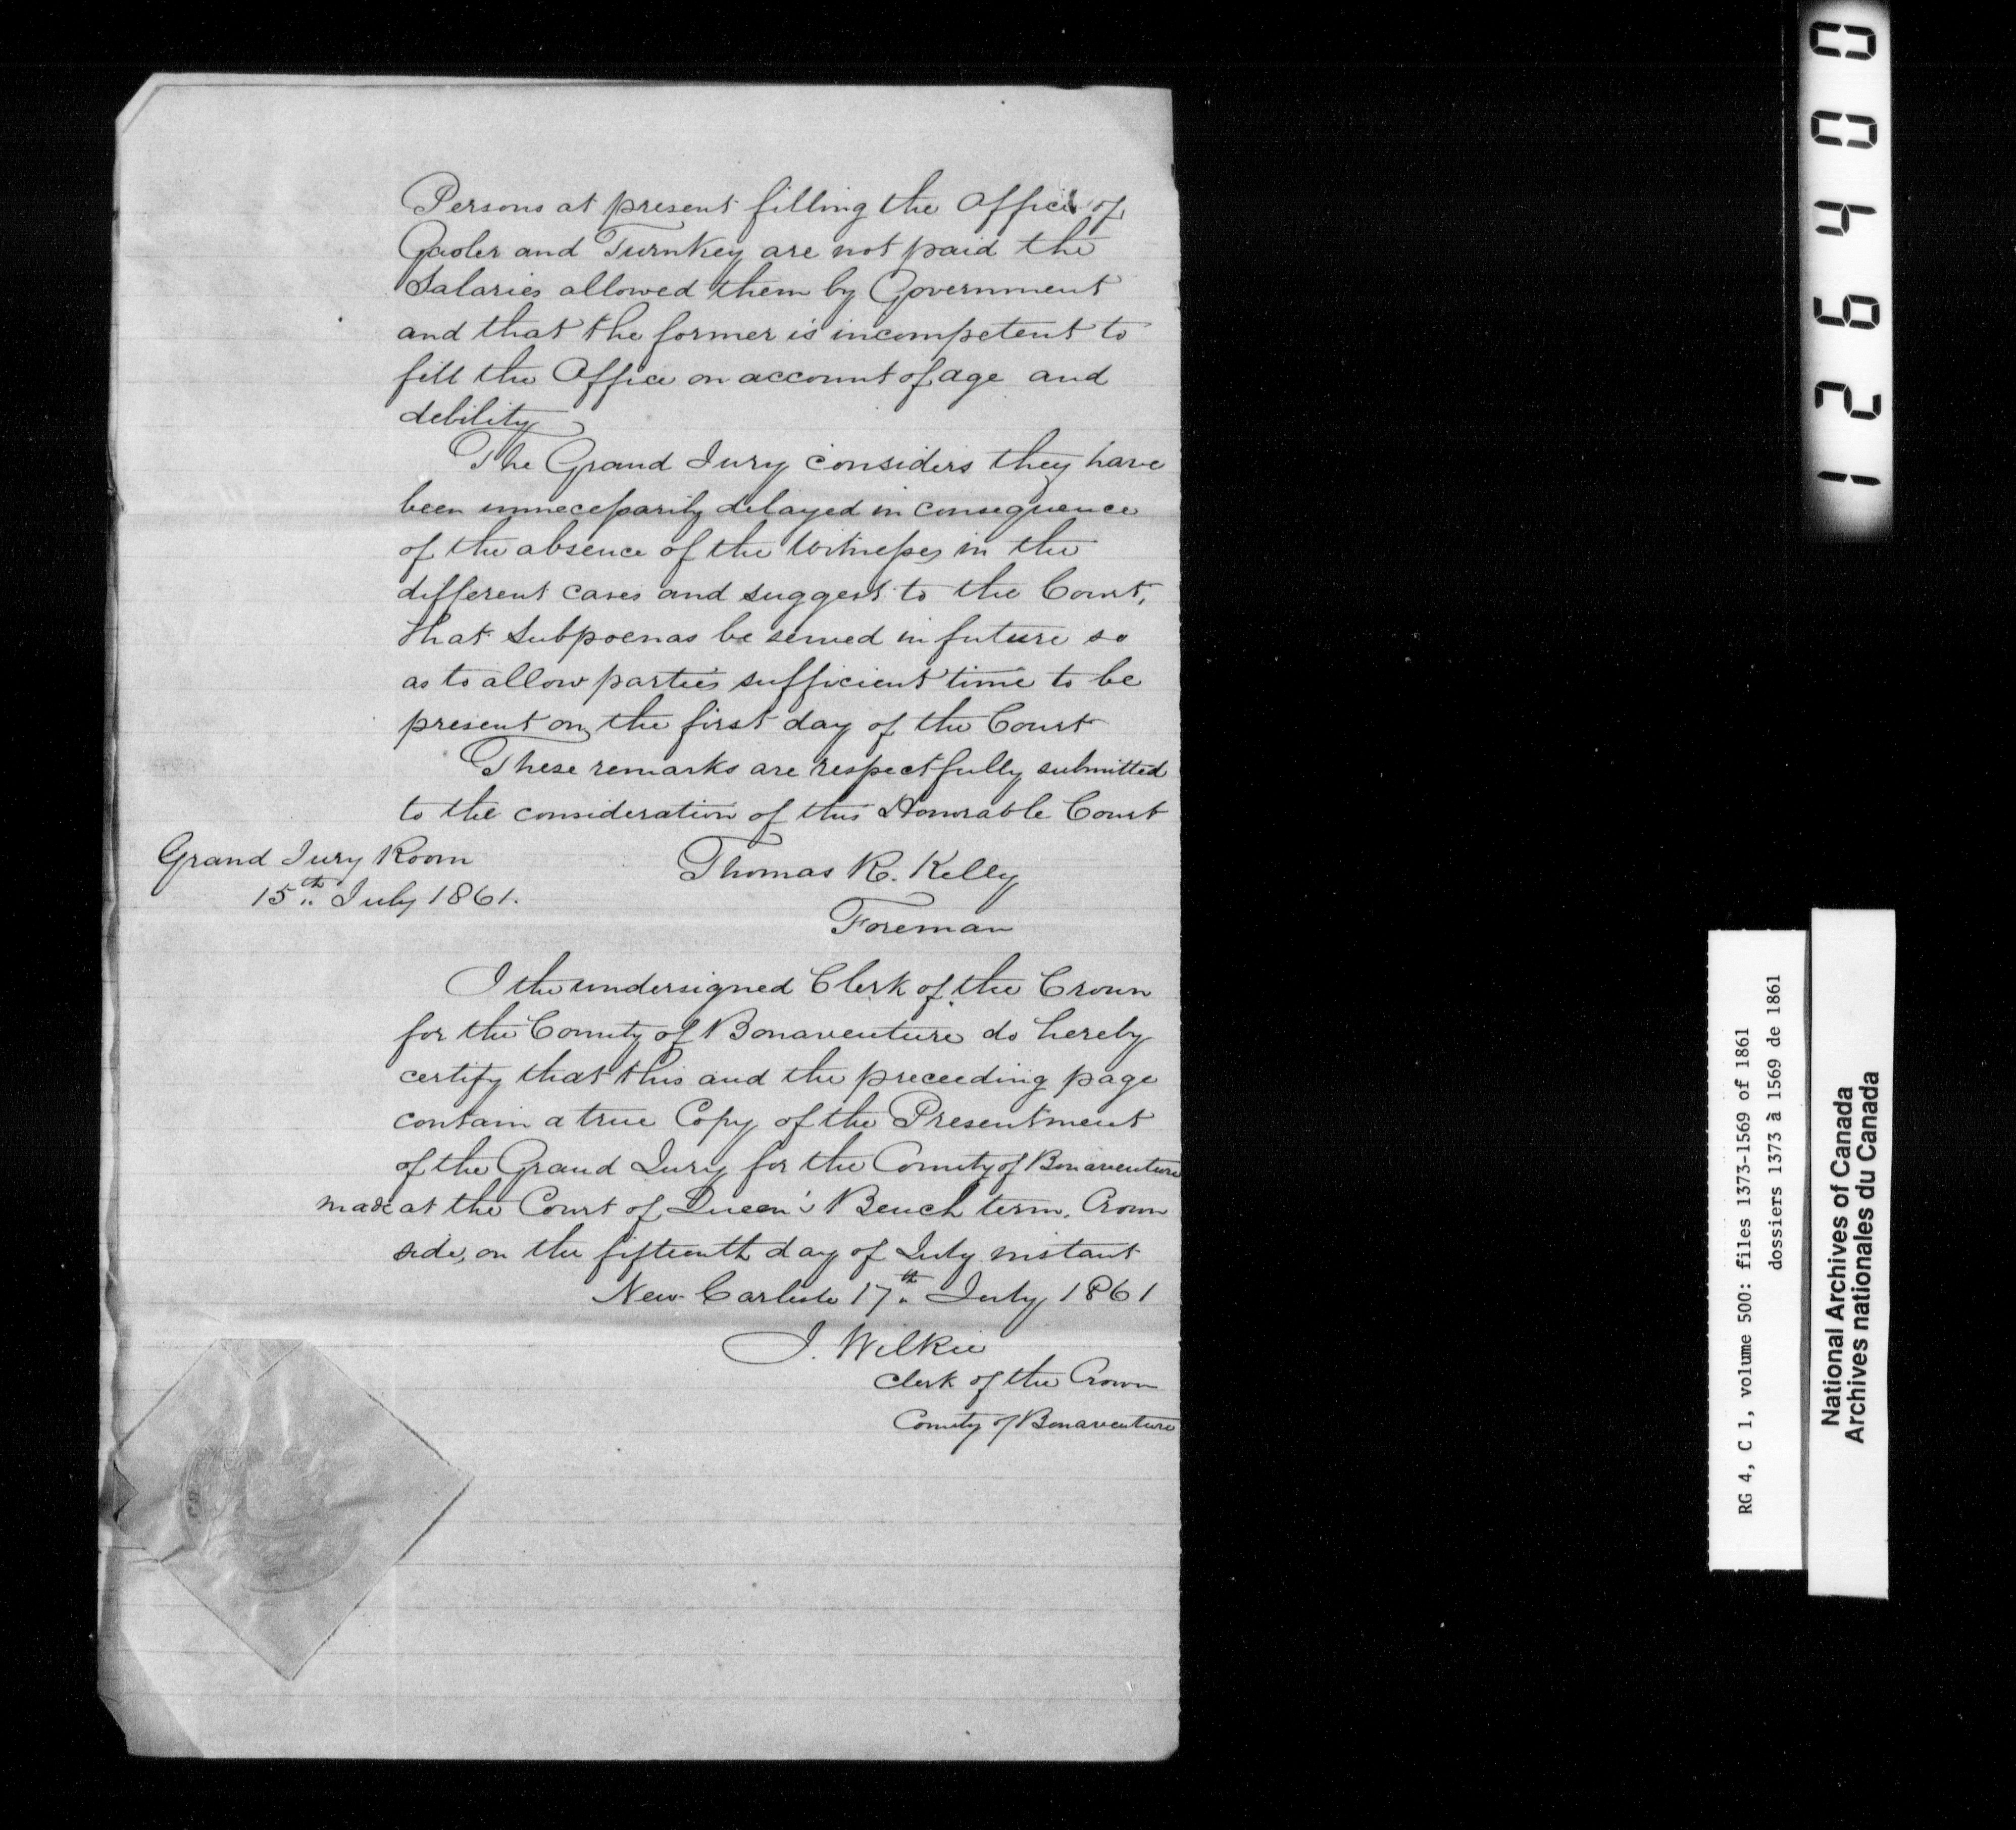 Persons at present filling the Office of
Gaoler and Turnkey are not paid the
Salaries allowed them by Government
and that the former is incompetent to
fill the Office on account of age and
debility
The Grand Jury considers they have
been unnecessarily delayed in consequence
of the absence of the Witnesses in the
different cases and suggest to the Court,
that Subpoenas be served in future so
as to allow parties sufficient time to be
present on the first day of the Court
These remarks are respectfully submitted
to the consideration of this Honorable Court
Grand Jury Room
15th July 1861.
Thomas R. Kelly
Foreman
I the undersigned Clerk of the Crown
for the County of Bonaventure do hereby
certify that this and the preceeding page
contain a true Copy of the Presentment
of the Grand Jury for the County of Bonaventure
made at the Court of Queen's Bench term, Crown
side, on the fifteenth day of July instant
New Carlisle 17th July 1861
J. Wilkie
Clerk of the Crown
County of Bonaventure
126400
RG 4, C 1, volume 500: files 1373-1569 of 1861
dossiers 1373 à 1569 de 1861
National Archives of Canada
Archives nationales du Canada